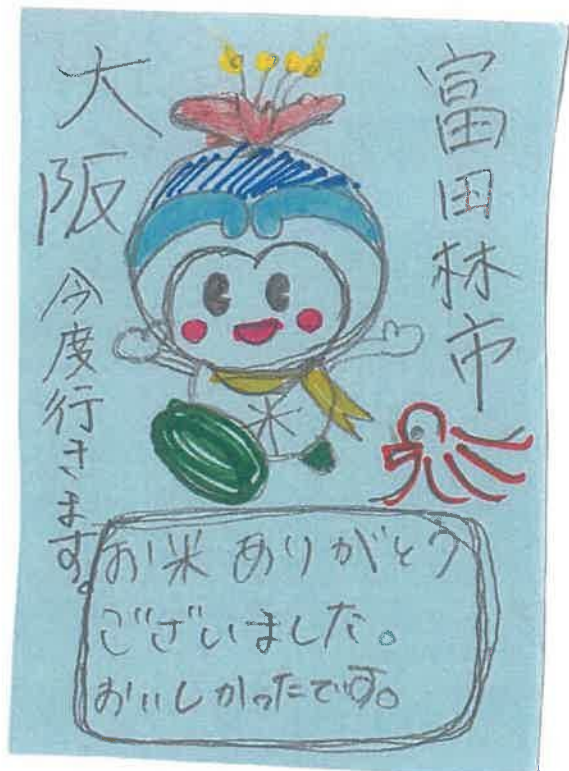 富田林市
大阪
今度行きます。
お米ありがとう
ございました。
おいしかったです。